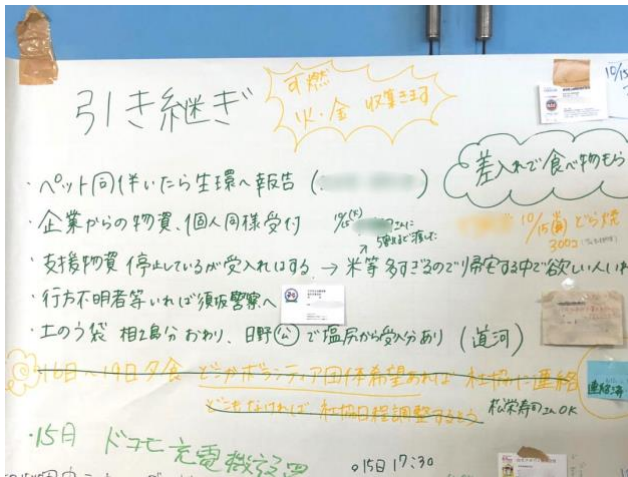 引き継ぎ
可燃
火・金 収集きます
10/15
差入れで食べ物もら
・ペット同伴いたら生環へ報告(
・企業からの物資、個人同様受付
10/15(火)
さんに
10/15 どら焼
300コ
・支援物資 停止しているが受入れはする → 米等多すぎるので帰宅する中で欲しい人いれ
・行方不明者等いれば須坂警察へ
・土のう袋 相之島分おわり、日野公で塩尻から受入分あり(道河)
16日~19日夕食 どこかボランティア団体希望あれば社協に連絡
連絡済
どこもなければ 社協日程調整するとう
松栄寿司さんOK
・15日 ドコモ充電機設置
15日17:30